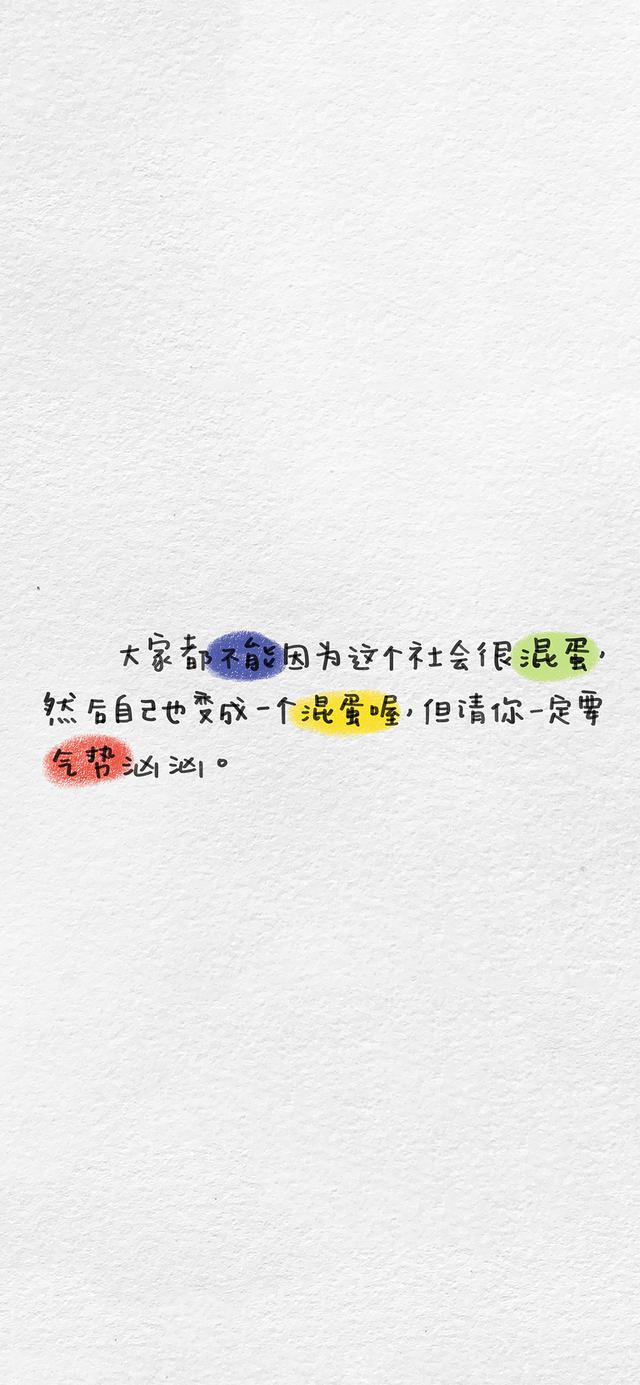 大家都不能因为这个社会很混蛋，
然后自己也变成一个混蛋喔，但请你一定要
气势汹汹。